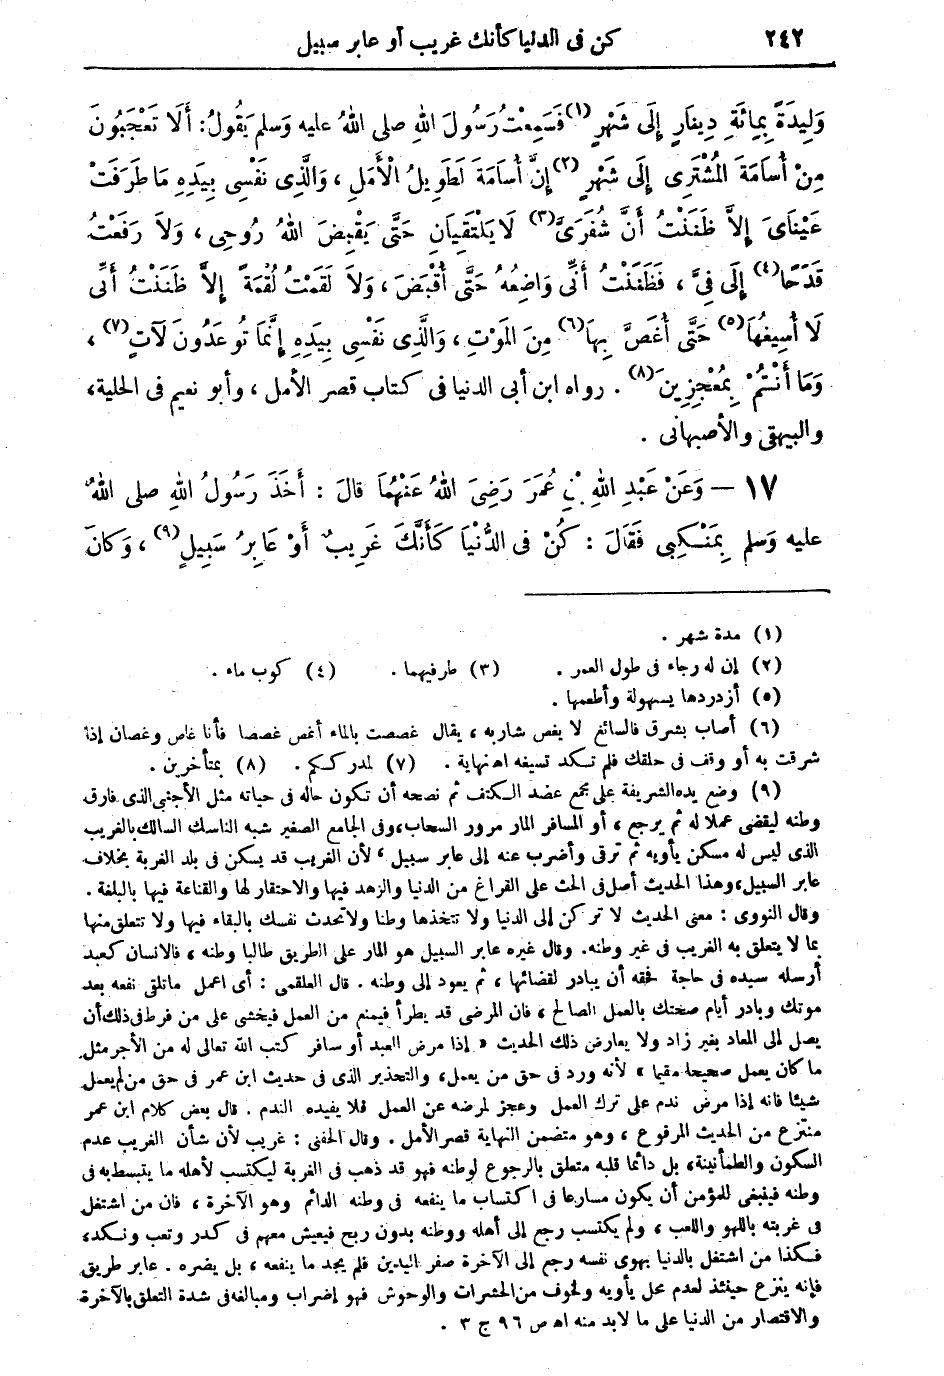 ٢٤٢ كن فى الدنيا كأنك غريب أو عابر سبيل
وَلِيدَةً بِمِائَةِ دِينَارٍ إِلَى شَهْرٍ (١) فَسَمِعْتُ رَسُولَ اللهِ صلى اللهُ عليه وَسلم يَقُولُ: أَلَا تَعْجَبُونَ
مِنْ أُسَامَةَ الْمُشْتَرِى إِلَى شَهْرٍ (٢) إِنَّ أُسَامَةَ لَطَوِيلُ الْأَمَلِ ، وَالَّذِى نَفْسِى بِيَدِهِ مَا طَرَفَتْ
عَيْنَاىَ إِلاَّ ظَنَنْتُ أَنَّ شُفْرَىَّ (٣) لَا يَلْتَقِيَانِ حَتَّى يَقْبِضَ اللهُ رُوحِى ، وَلاَ رَفَعْتُ
قَدَحًا (٤) إِلَى فِىَّ ، فَظَنَنْتُ أَنِّى وَاضِعُهُ حَتَّى أُقْبَضَ ، وَلاَ لَقَمْتُ لُقْمَةً إِلاَّ ظَنَنْتُ أَنِّى
لَا أُسِيغُهَا (٥) حَتَّى أَغَصَّ بِهَا (٦) مِنَ المَوْتِ ، وَالَّذِى نَفْسِى بِيَدِهِ إِنَّمَا تُوعَدُونَ لَآتٍ (٧) ،
وَمَا أَنْتُمْ بِمُعْجِزِينَ (٨) . رواه ابن أبى الدنيا فى كتاب قصر الأمل ، وأبو نعيم فى الحلية،
والبيهقى والأصبهانى .
١٧ — وَعَنْ عَبْدِ اللهِ بْنِ عُمَرَ رَضِىَ اللهُ عَنْهُمَا قالَ : أَخَذَ رَسُولُ اللهِ صلى اللهُ
عليه وَسلم بِمَنْكِبِى فَقَالَ : كُنْ فى الدُّنْيَا كَأَنَّكَ غَرِيبٌ أَوْ عَابِرُ سَبِيلٍ (٩) ، وَكانَ
(١) مدة شهر .
(٢) إن له رجاء فى طول العمر . (٣) طرفيهما . (٤) كوب ماء .
(٥) أزدردها بسهولة وأطعمها .
(٦) أصاب بشرق فالسائغ لا يغص شاربه ، يقال غصصت بالماء أغص غصصا فأنا غاص وغصان إذا
شرقت به أو وقف فى حلقك فلم تكد تسيغه اه نهاية . (٧) لمدرككم . (٨) بمتأخرين .
(٩) وضع يده الشريفة على مجمع عضد الكتف ثم نصحه أن تكون حاله فى حياته مثل الأجنبى الذى فارق
وطنه ليقضى عملا له ثم يرجع ، أو المسافر المار مرور السحاب، وفى الجامع الصغير شبه الناسك السالك بالغريب
الذى ليس له مسكن يأويه ثم ترقى وأضرب عنه إلى عابر سبيل ، لأن الغريب قد يسكن فى بلد الغربة بخلاف
عابر السبيل، وهذا الحديث أصل فى الحث على الفراغ من الدنيا والزهد فيها والاحتقار لها والقناعة فيها بالبلغة .
وقال النووى : معنى الحديث لا تركن إلى الدنيا ولا تتخذها وطنا ولا تحدث نفسك بالبقاء فيها ولا تتعلق منها
بما لا يتعلق به الغريب فى غير وطنه. وقال غيره عابر السبيل هو المار على الطريق طالبا وطنه ، فالانسان كعبد
أرسله سيده فى حاجة فحقه أن يبادر لقضائها ، ثم يعود إلى وطنه . قال العلقمى : أى اعمل ماتلقى نفعه بعد
موتك وبادر أيام صحتك بالعمل الصالح ، فان المرض قد يطرأ فيمنع من العمل فيخشى على من فرط فى ذلك أن
يصل إلى المعاد بغير زاد ولا يعارض ذلك الحديث « إذا مرض العبد أو سافر كتب الله تعالى له من الأجر مثل
ما كان يعمل صحيحا مقيما » لأنه ورد فى حق من يعمل، والتحذير الذى فى حديث ابن عمر فى حق من لم يعمل
شيئا فانه إذا مرض ندم على ترك العمل وعجز لمرضه عن العمل فلا يفيده الندم . قال بعض كلام ابن عمر
منتزع من الحديث المرفوع ، وهو متضمن النهاية قصر الأمل . وقال الحفنى : غريب لأن شأن الغريب عدم
السكون والطمأنينة، بل دائما قلبه متعلق بالرجوع لوطنه فهو قد ذهب فى الغربة ليكتسب لأهله ما يتبسط به فى
وطنه فينبغى للمؤمن أن يكون مسارعا فى اكتساب ما ينفعه فى وطنه الدائم وهو الآخرة ، فان من اشتغل
فى غربته باللهو واللعب ، ولم يكتسب رجع إلى أهله ووطنه بدون ربح فيعيش معهم فى كدر وتعب ونكد،
فكذا من اشتغل بالدنيا بهوى نفسه رجع إلى الآخرة صفر اليدين فلم يجد ما ينفعه ، بل يضره . عابر طريق
فإنه ينزعج حينئذ لعدم محل يأويه ولخوف من الحشرات والوحوش فهو إضراب ومبالغة فى شدة التعلق بالآخرة
والاقتصار من الدنيا على ما لابد منه اه ص ٩٦ ج ٣ .